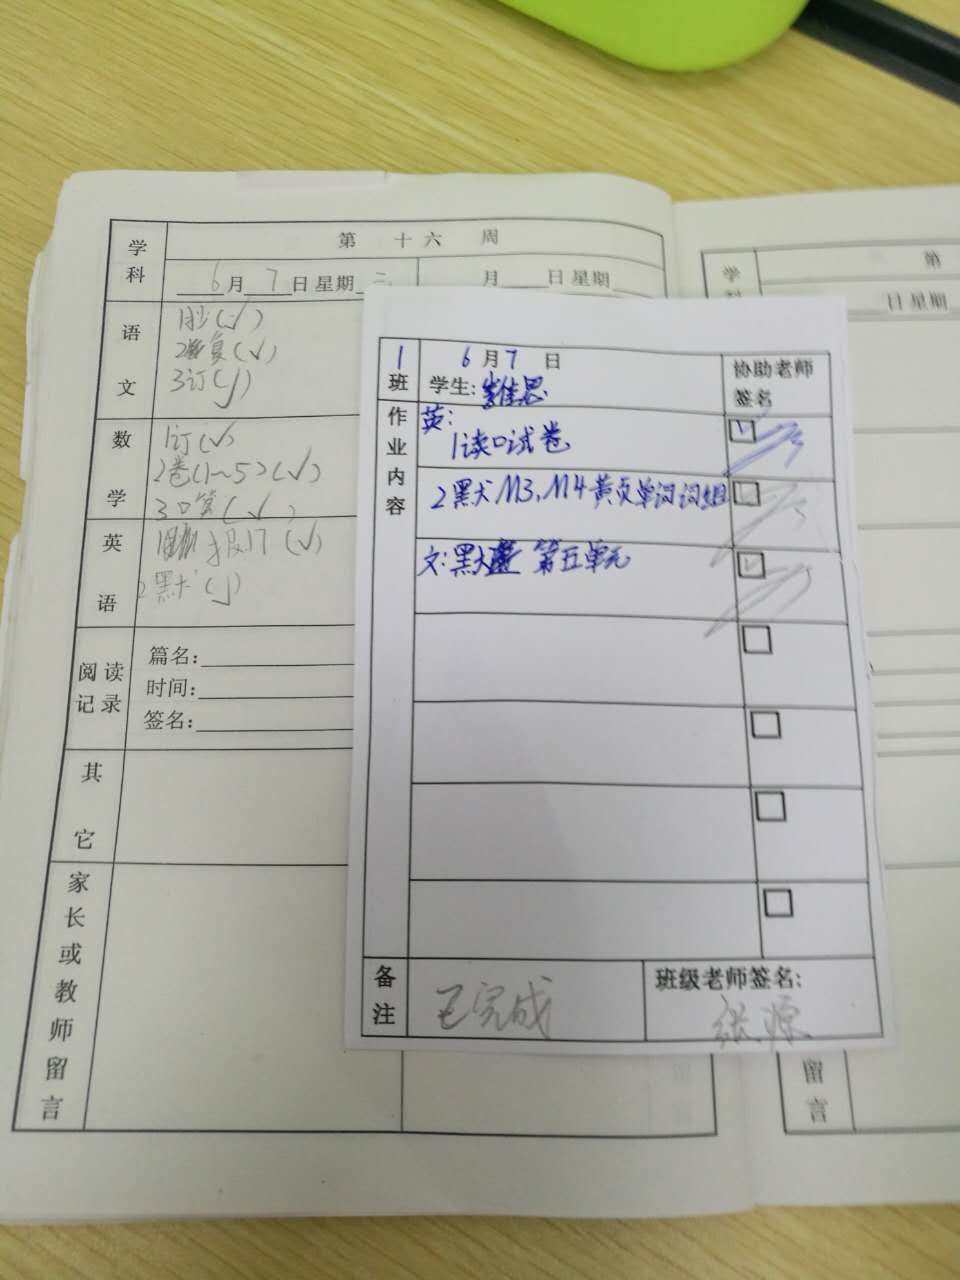 学科
第 十六 周
6月7日 星期三
月 日 星期
语文
1抄(√)
2 复(√)
3订(√)
数学
1订(√)
2卷(1~5)(√)
3口算(√)
英语
1 报17 (√)
2默(√)
阅读记录
篇名:
时间:
签名:
其它
家长或教师留言
1班
6月7日
学生:
协助老师签名
作业内容
英:
1读口试卷
2默 M3, M4黄页单词词组
文:默 第五单元
备注
已完成
班级老师签名:
张源
学
第
日 星期
留言